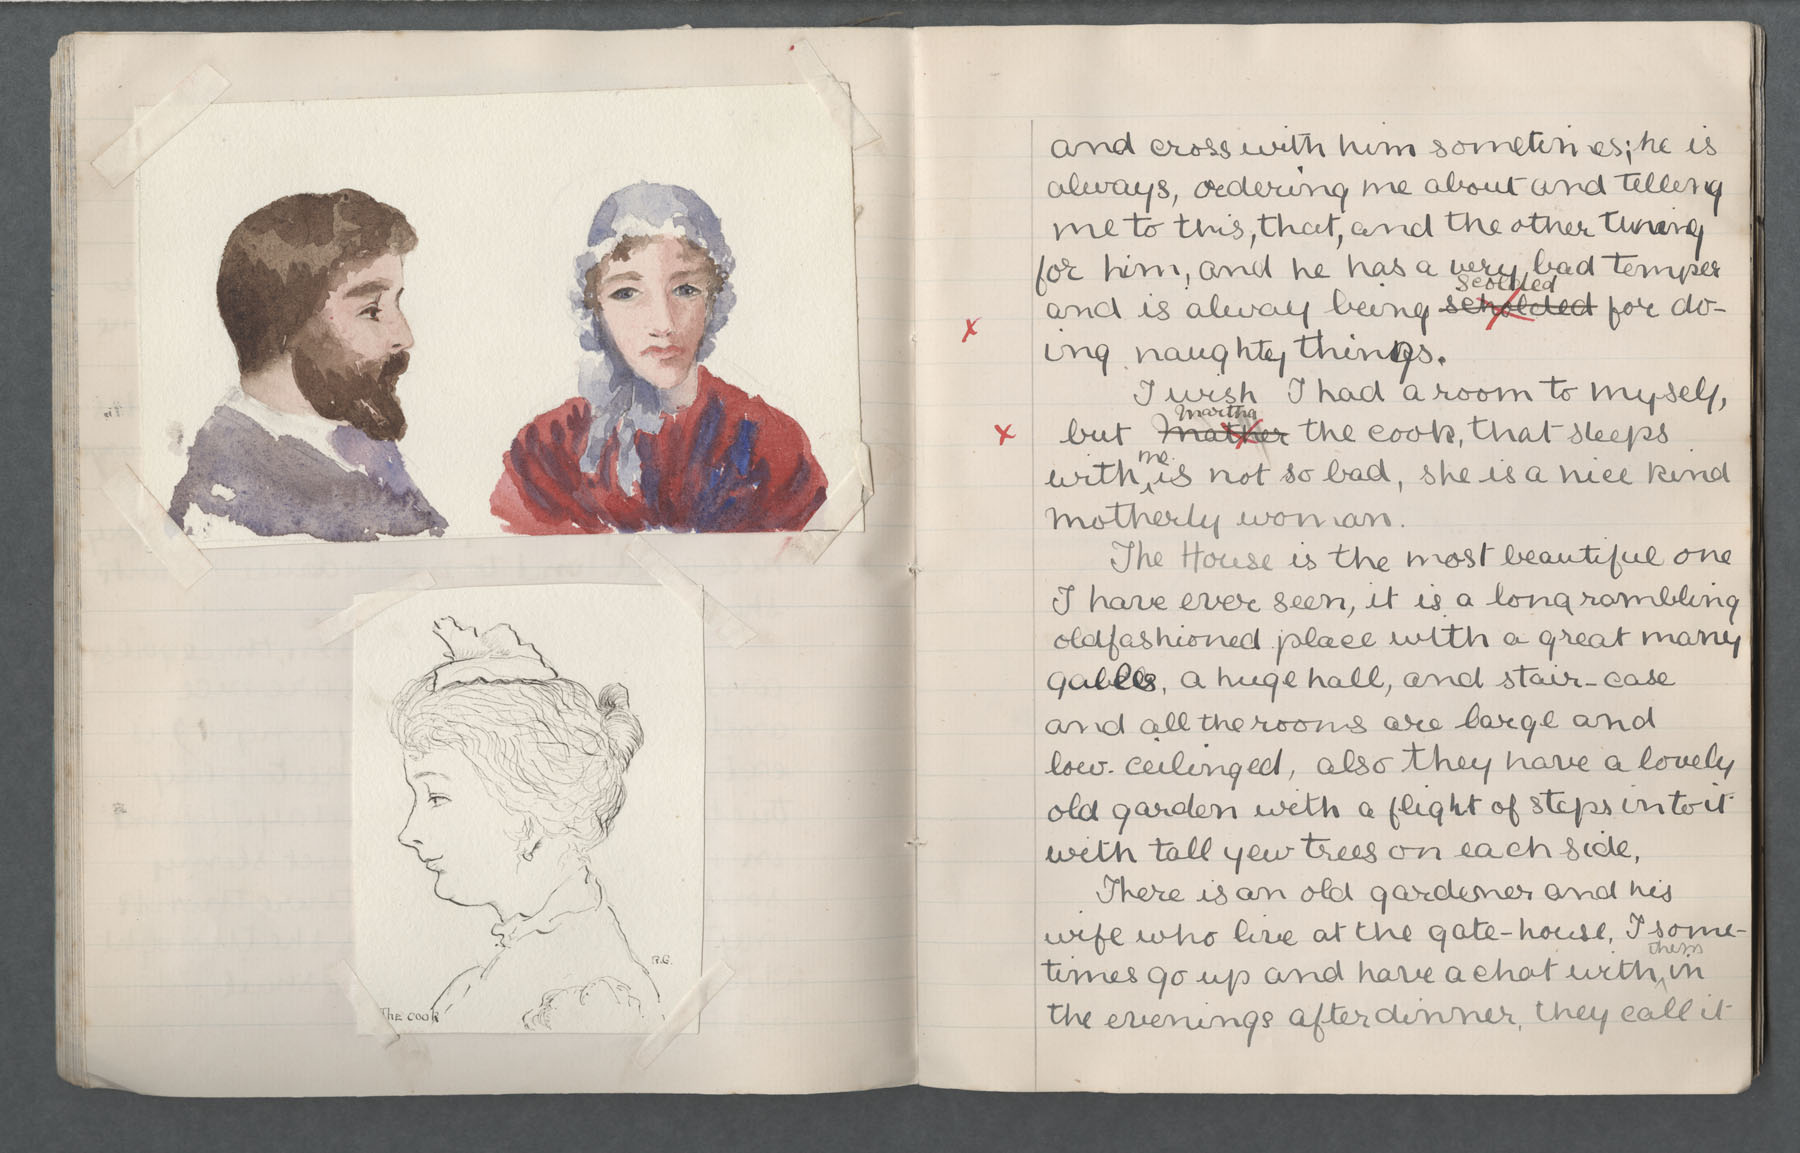 R.G.
The cook
and cross with him sometimes; he is
always, ordering me about and telling
me to this, that, and the other thing
for him, and he has a very bad temper
scolded
and is alway being scholded for do-
ing naughty things.
I wish I had a room to myself,
Martha
but Mather the cook, that sleeps
me
with is not so bad, she is a nice kind
motherly woman.
The House is the most beautiful one
I have ever seen, it is a long rambling
oldfashioned place with a great many
gables, a huge hall, and stair-case
and all the rooms are large and
low-ceilinged, also they have a lovely
old garden with a flight of steps into it
with tall yew trees on each side.
There is an old gardener and his
wife who live at the gate-house. I some-
them
times go up and have a chat with in
the evenings after dinner, they call it